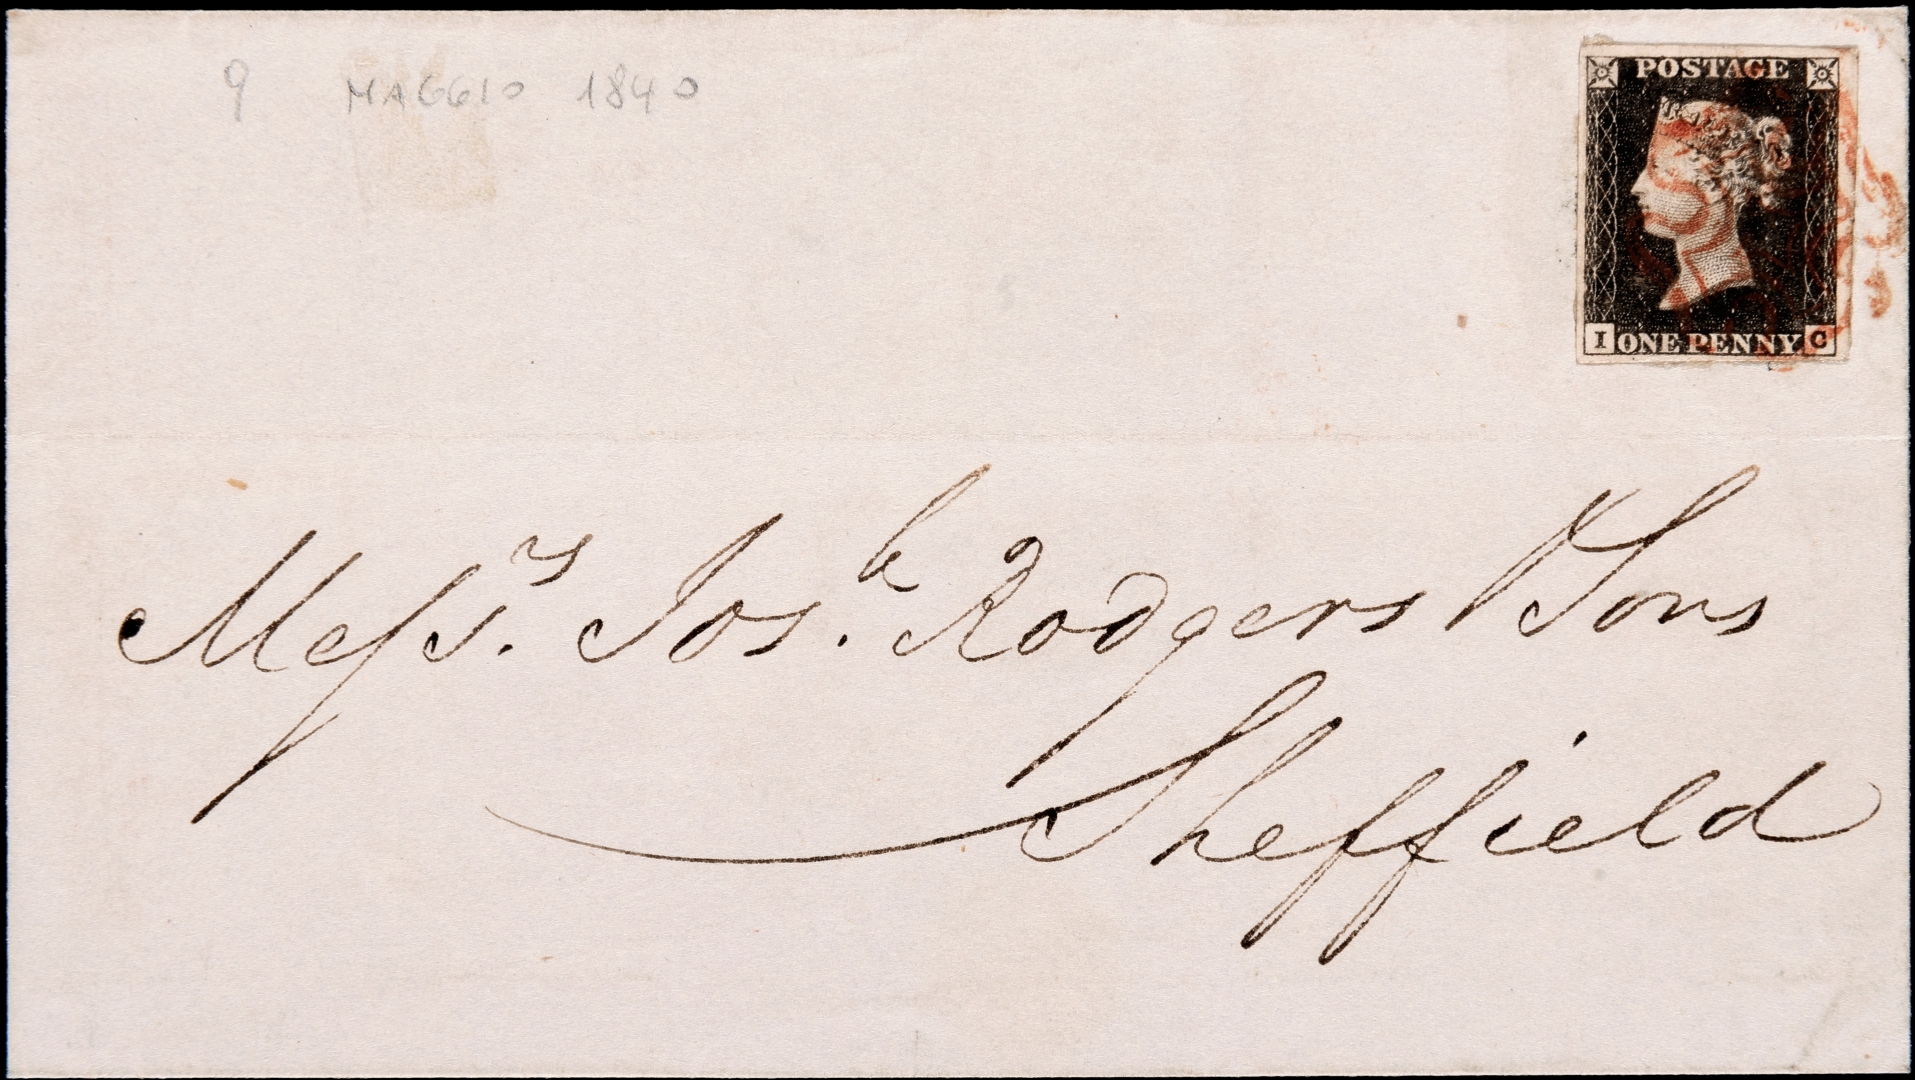 9 MAGGIO 1840
POSTAGE
I ONE PENNY C
Messrs. Josh. Rodgers & Sons
Sheffield